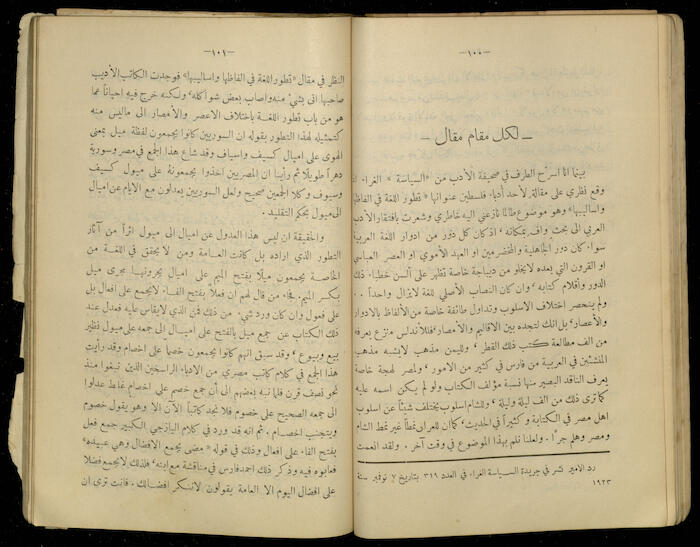 —١٠٠—
— لكل مقام مقال —
بينما انا اسرّح الطرف في صحيفة الأدب من «السياسة» الغراء اذ
وقع نظري على مقالة لأحد أدباء فلسطين عنوانها «تطور اللغة في الفاظها
واساليبها» وهو موضوع طالما نازعني اليه خاطري وشعرت بافتقار الأدب
العربي الى بحث وافٍ بمكانه، اذ كان كل دور من ادوار اللغة العربية
سواء كان دور الجاهلية والمخضرمين او العهد الأموي او العصر العباسي
او القرون التي بعده لا يخلو من ديباجة خاصة تظهر على ألسن خطباء ذلك
الدور واقلام كتابه، وان كان النصاب الأصلي للغة لا يزال واحداً..
ولم ينحصر اختلاف الاسلوب وتداول طائفة خاصة من الألفاظ بالادوار
والأعصار، بل انك لتجده بين الاقاليم والأمصار، فللأندلس منزع يعرفه
من الف مطالعة كتب ذلك القطر، ولليمن مذهب لا يشبه مذهب
المنشئين في العربية من فارس في كثير من الامور، ولمصر لهجة خاصة
يعرف الناقد البصير منها نسبة مؤلف الكتاب ولو لم يكن اسمه عليه
كما ترى ذلك من الف ليلة وليلة، وللشام اسلوب يختلف شيئاً عن اسلوب
اهل مصر في الكتابة وكثيراً في الحديث، كما ان للعراق نمطاً غير نمط الشام
ومصر وهلم جراً. ولعلنا نلم بهذا الموضوع في وقت آخر. ولقد انعمت
رد الامير نشر في جريدة السياسة الغراء في العدد ٣١٩ بتاريخ ٧ نوفمبر سنة
١٩٢٣
—١٠١—
النظر في مقال «تطور اللغة في الفاظها واساليبها» فوجدت الكاتب الأديب
صاحبها اتى بشيء منه واصاب بعض شواكله، ولكنه خرج فيه احياناً عما
هو من باب تطور اللغة باختلاف الاعصر والأمصار الى ما ليس منه
كتمثيله لهذا التطور بقوله ان السوريين كانوا يجمعون لفظة ميل بمعنى
الهوى على اميال كسيف واسياف وقد شاع هذا الجمع في مصر وسورية
دهراً طويلاً ثم رأينا ان المصريين اخذوا يجمعونه على ميول كسيف
وسيوف وكلا الجمعين صحيح ولعل السوريين يعدلون مع الايام عن اميال
الى ميول بحكم التقليد.
والحقيقة ان ليس هذا العدول عن اميال الى ميول اثراً من آثار
التطور الذي اراده بل كانت العامة ومن لا يحقق في اللغة من
الخاصة يجمعون ميلاً بفتح الميم على اميال يجرونها مجرى ميل
بكسر الميم. فجاء من قال لهم ان فعلاً بفتح الفاء لا يجمع على افعال بل
على فعول وان كان ورد شيء من ذلك فمن الذي لا يقاس عليه فعدل عند
ذلك الكتاب عن جمع ميل بالفتح على اميال الى جمعه على ميول نظير
بيع وبيوع، وقد سبق انهم كانوا يجمعون خصماً على اخصام وقد رأيت
هذا الجمع في كلام كاتب مصري من الادباء الراسخين الذين نبغوا منذ
نحو نصف قرن فلما نبه بعضهم الى أن جمع خصم على اخصام غلط عدلوا
الى جمعه الصحيح على خصوم فلا تجد كاتباً الآن الا وهو يقول خصوم
ويتجنب اخصام. ثم انه قد ورد في كلام اليازجي الكبير جمع فعل
بفتح الفاء على افعال وذلك في قوله «مضى يجمع الافضال وهي عبيده»
فعابوه فيه وذكر ذلك احمد فارس في مناقشة مع ابنه، فلذلك لا يجمع فضلاً
على افضال اليوم الا العامة يقولون لا ننكر افضالك. فانت ترى ان